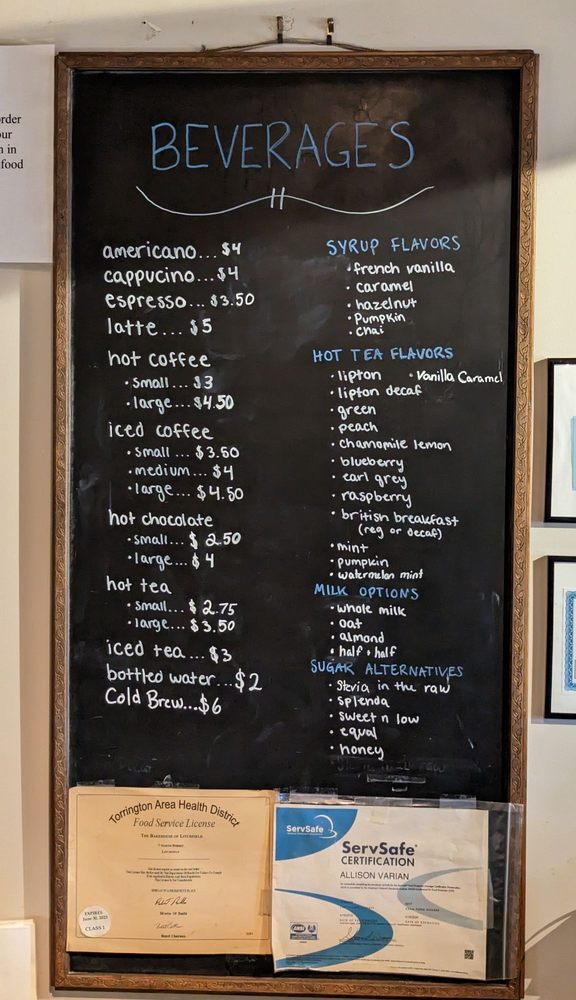 order
our
n in
food
BEVERAGES
americano... $4
cappucino... $4
espresso... $3.50
latte... $5
hot coffee
• small... $3
• large... $4.50
iced coffee
• small... $3.50
• medium... $4
• large... $4.50
hot chocolate
• small... $2.50
• large... $4
hot tea
• small... $2.75
• large... $3.50
iced tea... $3
bottled water... $2
Cold Brew... $6
SYRUP FLAVORS
• french vanilla
• caramel
• hazelnut
• Pumpkin
• chai
HOT TEA FLAVORS
• lipton • Vanilla Caramel
• lipton decaf
• green
• peach
• chamomile lemon
• blueberry
• earl grey
• raspberry
• british breakfast
(reg or decaf)
• mint
• pumpkin
• watermelon mint
MILK OPTIONS
• whole milk
• oat
• almond
• half + half
SUGAR ALTERNATIVES
• Stevia in the raw
• splenda
• sweet n low
• equal
• honey
Torrington Area Health District
Food Service License
THE BAKEHOUSE OF LITCHFIELD
EXPIRES
June 30, 2023
CLASS 1
ServSafe
ServSafe
CERTIFICATION
ALLISON VARIAN